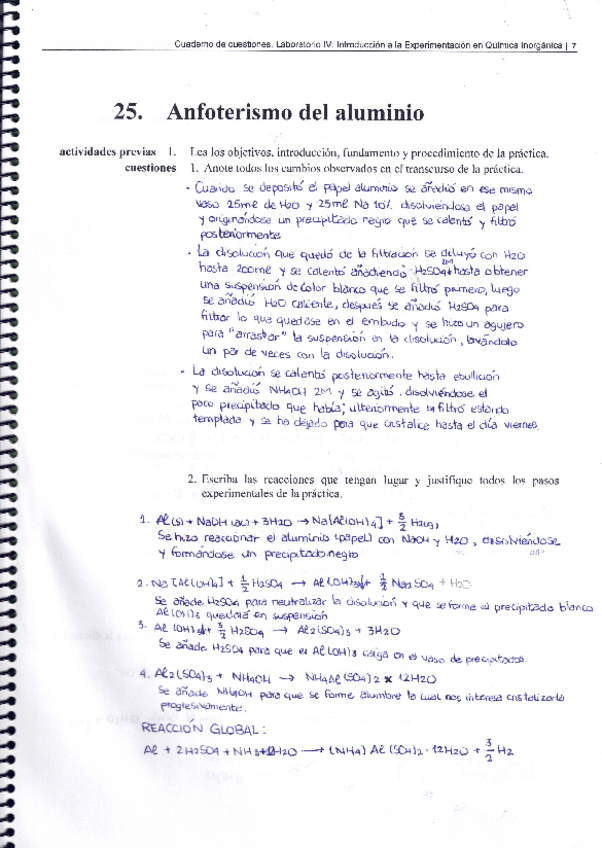 Cuaderno de cuestiones. Laboratorio IV: Introducción a la Experimentación en Química Inorgánica | 7
25. Anfoterismo del aluminio
actividades previas 1. Lea los objetivos, introducción, fundamento y procedimiento de la práctica.
cuestiones 1. Anote todos los cambios observados en el transcurso de la práctica.
- Cuando se depositó el papel aluminio se añadió en ese mismo
vaso 25ml de H2O y 25ml Na 10% disolviéndose el papel
y originándose un precipitado negro que se calentó y filtró
posteriormente
- La disolución que quedó de la filtración se diluyó con H2O
hasta 200ml y se calentó añadiendo H2SO4 2M hasta obtener
una suspensión de color blanco que se filtró primero, luego
se añadió H2O caliente, después se añadió H2SO4 para
filtrar lo que quedase en el embudo y se hizo un agujero
para "arrastrar" la suspensión en la disolución, lavándolo
un par de veces con la disolución.
- La disolución se calentó posteriormente hasta ebullición
y se añadió NH4OH 2M y se agitó, disolviéndose el
poco precipitado que había; ulteriormente se filtró estando
templada y se ha dejado para que cristalice hasta el día viernes.
2. Escriba las reacciones que tengan lugar y justifique todos los pasos
experimentales de la práctica.
1. Al(s) + NaOH (ac) + 3H2O → Na[Al(OH)4] + 3/2 H2(g)
Se hizo reaccionar el aluminio (papel) con NaOH y H2O, disolviéndose
y formándose un precipitado negro
2. Na[Al(OH)4] + 1/2 H2SO4 → Al(OH)3↓ + 1/2 Na2SO4 + H2O
Se añade H2SO4 para neutralizar la disolución y que se forme el precipitado blanco
Al(OH)3 quedará en suspensión
3. Al(OH)3↓ + 3/2 H2SO4 → Al2(SO4)3 + 3H2O
Se añade H2SO4 para que el Al(OH)3 caiga en el vaso de precipitados.
4. Al2(SO4)3 + NH4OH → NH4Al(SO4)2 x 12H2O
Se añade NH4OH para que se forme alumbre lo cual nos interesa cristalizarlo
progresivamente.
REACCIÓN GLOBAL:
Al + 2H2SO4 + NH3 + 12H2O → (NH4)Al(SO4)2 · 12H2O + 3/2 H2